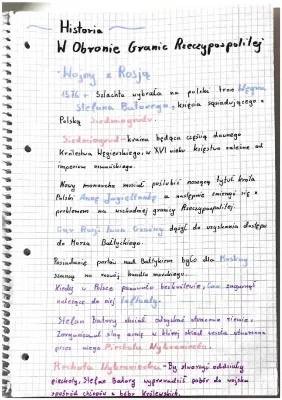 Historia
W Obronie Granic Rzeczypospolitej
- Wojny z Rosją
1576 r Szlachta wybrała na polski tron Węgra
Stefana Batorego, księcia sąsiadującego z
Polską Siedmiogrodu.
Siedmiogród - kraina będąca częścią dawnego
Królestwa Węgierskiego, w XVI wieku księstwo zależne od
imperium osmańskiego.
Nowy monarcha musiał poślubić noszącą tytuł króla
Polski Annę Jagiellonkę a następnie zmierzyć się z
problemem na wschodniej granicy Rzeczypospolitej.
Car Rosji Iwan Groźny dążył do uzyskania dostępu
do Morza Bałtyckiego.
Posiadanie portów nad Bałtykiem było dla Moskwy
szansą na rozwój handlu morskiego.
Kiedy w Polsce panowało bezkrólewie, Car zagarnął
należące do niej Inflanty.
Stefan Batory chciał odzyskać utracone ziemie.
Zorganizował silną armię w której skład weszła utworzona
przez niego Piechota Wybraniecka.
Piechota Wybraniecka - By stworzyć oddziały
piechoty, Stefan Batory wyprowadził pobór do wojska
spośród chłopów z dóbr Królewskich.